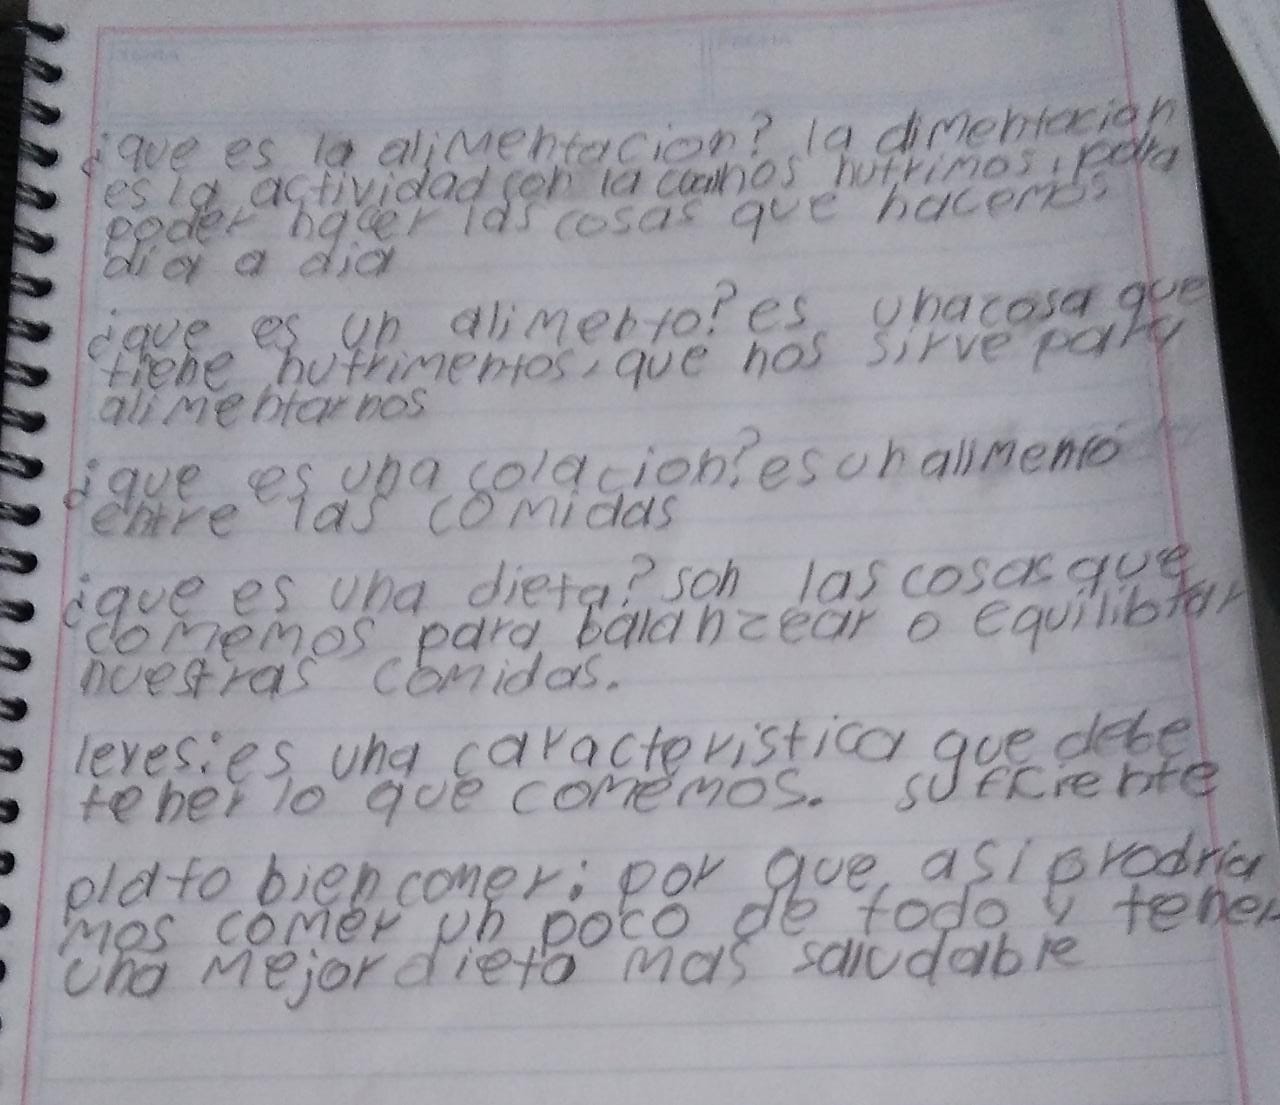 ¿que es la alimentacion? la alimentacion
es la actividad con la nos nutrimos, para
poder hacer las cosas que hacemos
dia a dia
¿que es un alimento? es una cosa que
tiene nutrimentos, que nos sirve para
alimentarnos
¿que es una colacion? es un alimento
entre las comidas
¿que es una dieta? son las cosas que
comemos para balanzear o equilibrar
nuestras comidas.
leyes: es una caracteristica que debe
tener lo que comemos. sufficiente
plato bien comer: por que, asi prodria
mos comer un poco de todo y tener
una mejor dieta mas saludable